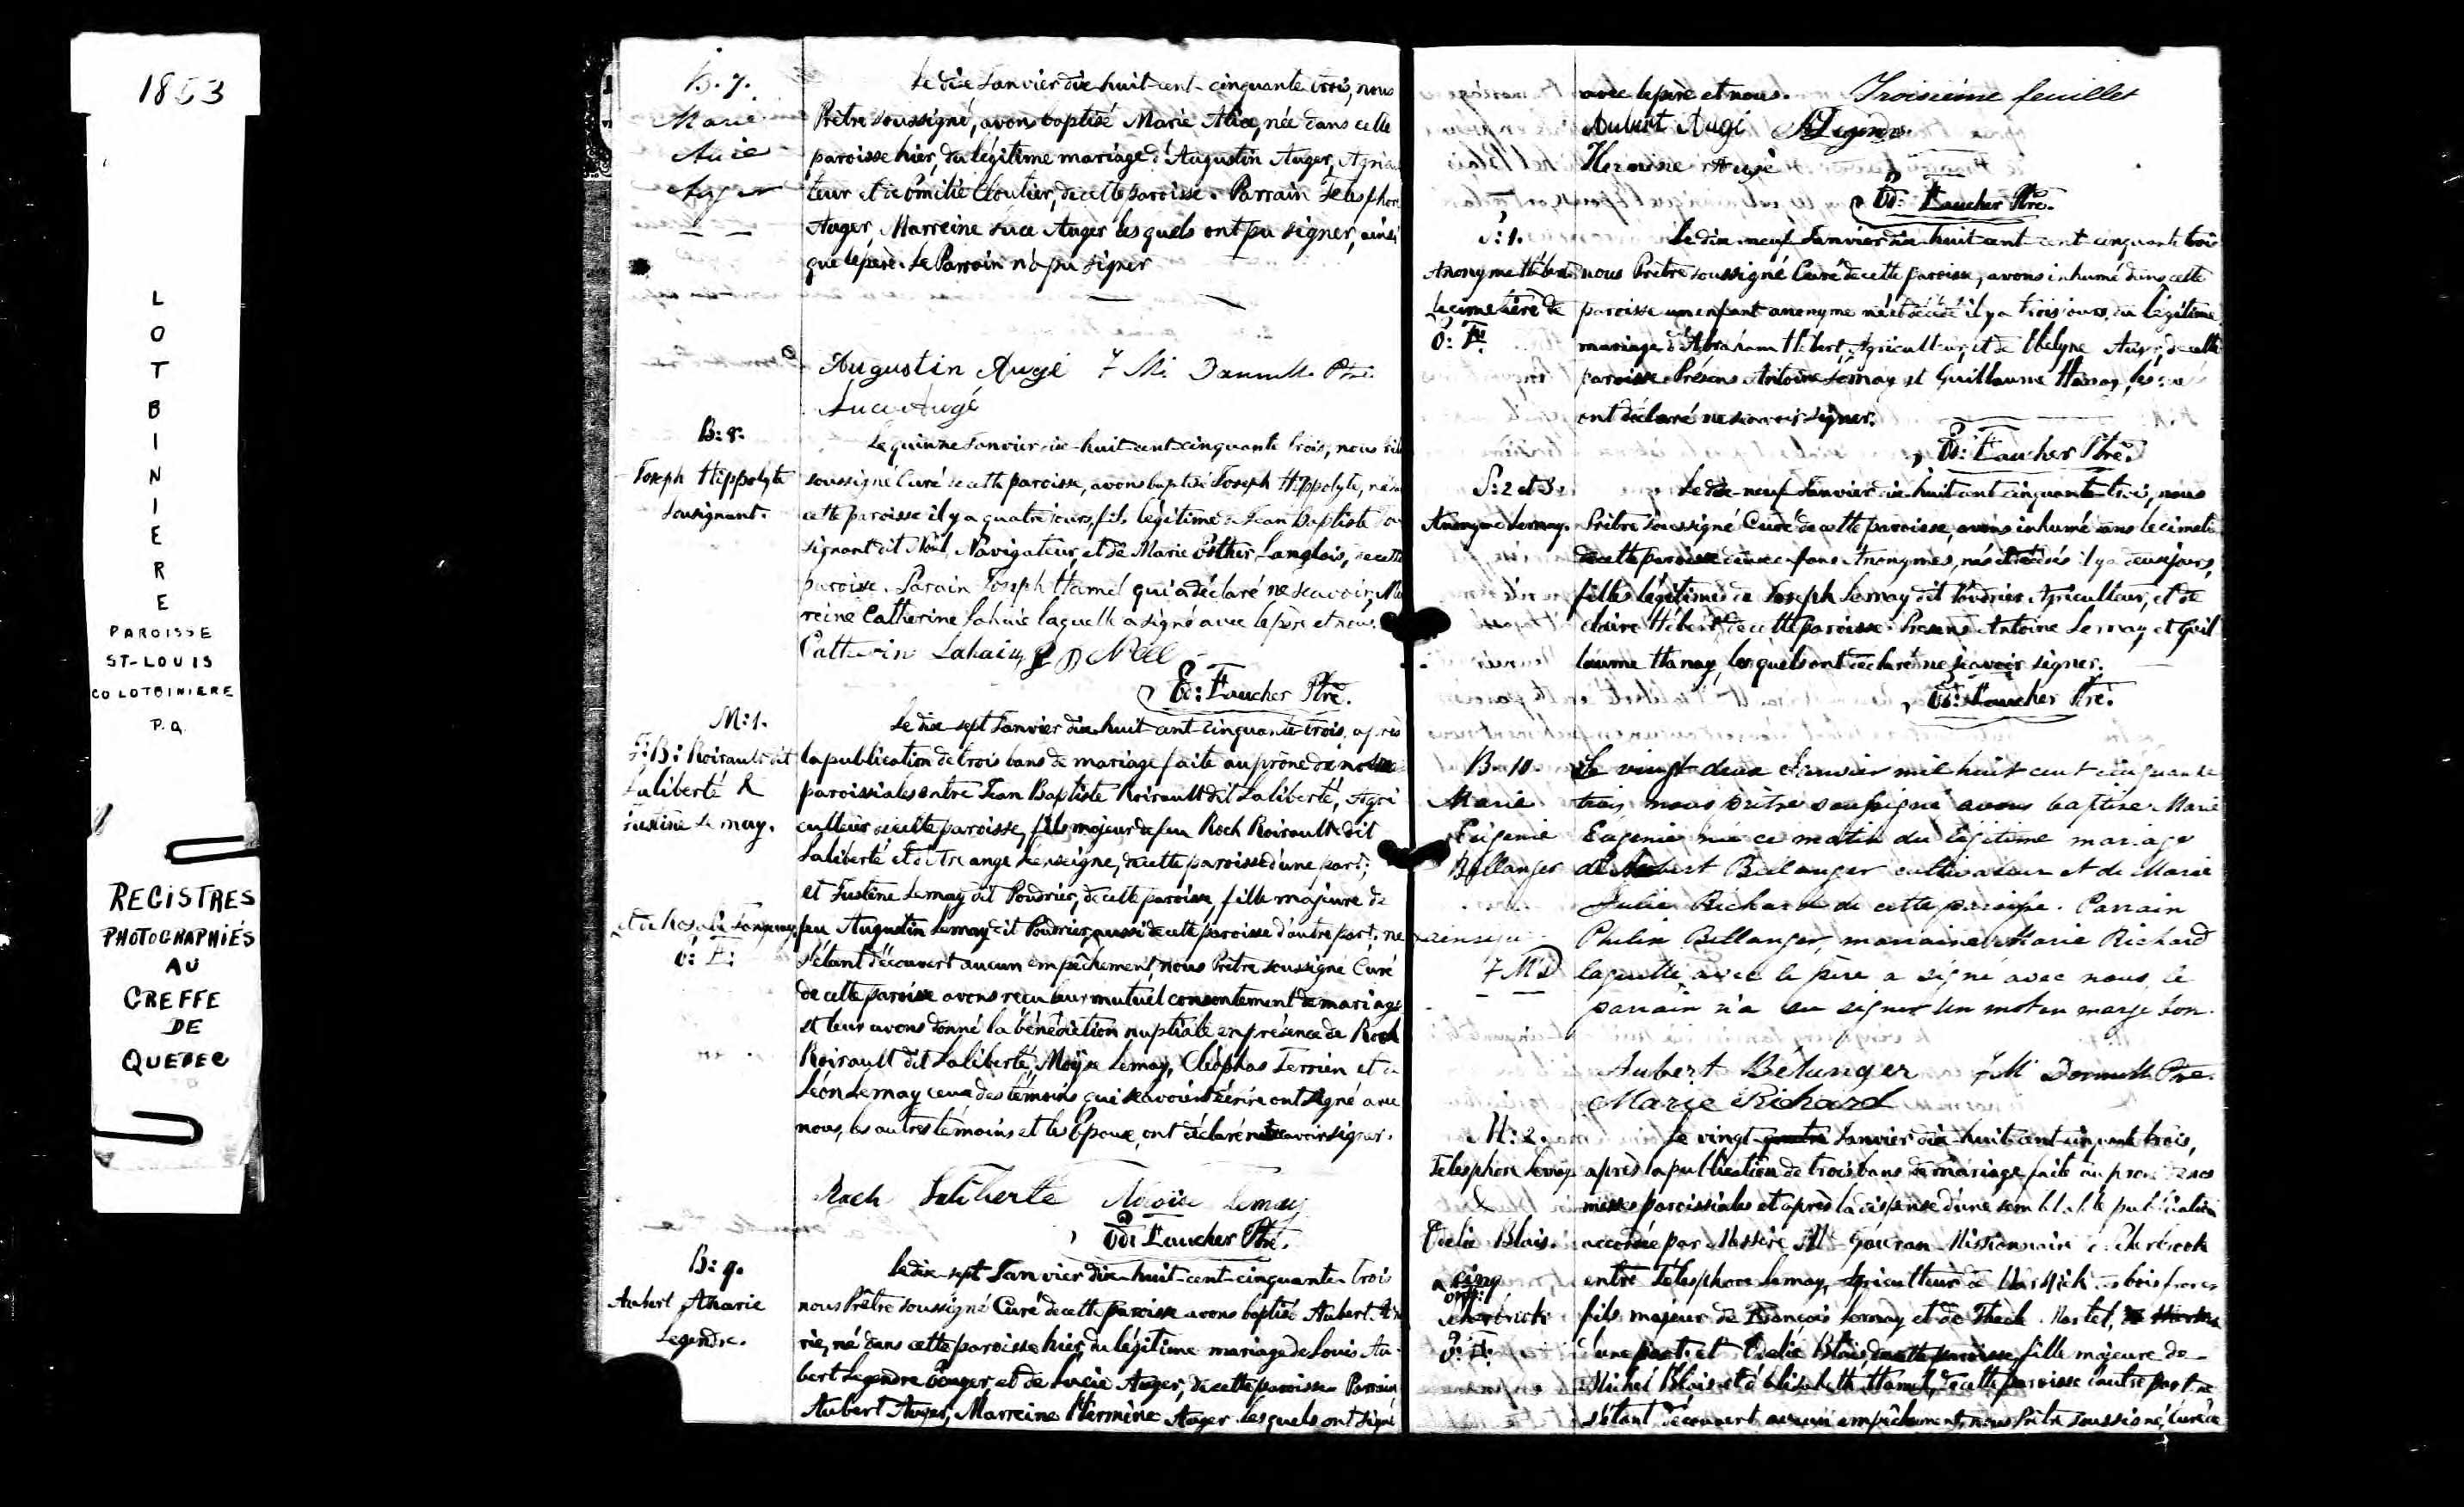 1853
LOTBINIERE
PAROISSE
ST-LOUIS
CO LOTBINIERE
P.Q.
REGISTRES
PHOTOGRAPHIÉS
AU
GREFFE
DE
QUEBEC
B. 7.
Marie
Alice
Auger
Le dix Janvier dix-huit-cent-cinquante trois, nous
Prêtre soussigné, avons baptisé Marie Alice, née dans cette
paroisse hier, du légitime mariage d'Augustin Auger, Agricul
teur et de Emilie Cloutier, de cette paroisse. Parrain Telesphore
Auger, Marreine Luce Auger lesquels ont pu signer, ainsi
que le père. Le Parrain n'a pu signer
Augustin Augé
Luce Augé
B: 8.
Joseph Hippolyte
Sousignant.
Le quinze Janvier dix-huit-cent-cinquante trois, nous
soussigné Curé de cette paroisse, avons baptisé Joseph Hippolyte, né
cette paroisse il y a quatre jours, fils légitime de Jean Baptiste Sou
signant dit Noël, Navigateur, et de Marie Esther Langlois, de cette
paroisse. Parain Joseph Hamel qui a déclaré ne sçavoir, Ma
reine Catherine Lahaie laquelle a signé avec le père et nous.
Catherin Lahaie J B Noel
Ed: Faucher Ptre.
M: 1.
J: B: Roirault dit
Laliberté &
Justine Lemay.
Le dix-sept Janvier dix-huit-cent-cinquante-trois, après
la publication de trois bans de mariage faite au prône de
paroissiales entre Jean Baptiste Roirault dit Laliberté, Agri
culteur de cette paroisse, fils majeur de feu Roch Roirault dit
Laliberté et de Tre ange Lenseigne, de cette paroisse d'une part;
et Justine Lemay dit Poudrier, de cette paroisse, fille majeure de
feu Augustin Lemay dit Poudrier, aussi de cette paroisse d'autre part, ne
E: F:
s'étant découvert aucun empêchement, nous Prêtre soussigné Curé
de cette paroisse avons reçu leur mutuel consentement de mariage
et leur avons donné la bénédiction nuptiale en présence de Roch
Roirault dit Laliberté, Moÿse Lemay, Cléophas Terrien et de
Léon Lemay ceux des témoins qui sçavoient écrire ont signé avec
nous, les autres témoins et les Epoux ont déclaré ne sçavoir signer.
Roch Laliberté Moïse Lemay
Ed: Faucher Ptre.
B: 9.
Aubert Azarie
Legendre.
Le dix-sept Janvier dix-huit-cent-cinquante-trois
nous Prêtre soussigné Curé de cette paroisse avons baptisé Aubert Aza
rie, né dans cette paroisse hier, du légitime mariage de Louis Au
bert Legendre, et de Lucie Auger, de cette paroisse. Parrain
Aubert Auger, Marreine Hermine Auger lesquels ont signé
avec le père et nous. Troisième feuillet
Aubert Augé
Hermine Augé
Ed: Faucher Ptre.
S: 1.
Anonyme Hébert
le cimetière de
E: F.
Le dix-neuf Janvier dix-huit-cent-cent-cinquante trois
nous Prêtre soussigné Curé de cette paroisse, avons inhumé dans cette
paroisse un enfant anonyme né et décédé il y a trois jours, du légitime
mariage d'Abraham Hébert, Agriculteur, et de Ubelyne Auger, de cette
paroisse. Présens Antoine Lemay et Guillaume Hanay, lesquels
ont déclaré ne sçavoir signer.
Ed: Faucher Ptre.
S: 2 et 3.
Anonymes Lemay.
Le dix-neuf Janvier dix-huit-cent cinquante-trois, nous
Prêtre soussigné Curé de cette paroisse, avons inhumé dans le cimetiè
de cette paroisse deux enfans Anonymes, nés et décédés il y a deux jours,
filles légitimes de Joseph Lemay dit Poudrier, Agriculteur, et de
claire Hébert de cette paroisse. Présens Antoine Lemay et Guil
laume Hanay, lesquels ont déclaré ne sçavoir signer.
Ed: Faucher Ptre.
B. 10.
Marie
Eugenie
Bellanger
Le vingt deux Janvier mil huit cent cinquante
trois, nous prêtre soussigné avons baptisé Marie
Eugenie née ce matin du légitime mariage
de Aubert Bellanger cultivateur et de Marie
Julie Richard de cette paroisse. Parrain
Philix Bellanger, marraine Marie Richard
laquelle avec le père a signé avec nous, le
parrain n'a su signer Un mot en marge bon.
Aubert Bélanger
Marie Richard
M: 2.
Telesphore Lemay
&
Odelie Blais.
Le vingt-quatre Janvier dix-huit-cent-cinquante trois,
après la publication de trois bans de mariage faite au prone de nos
messes paroissiales et après la dispense d'une semblable publication
accordée par Messire
entre Télesphore Lemay, Agriculteur de
fils majeur de François Lemay et de Thecle Martel,
E: F.
d'une part; et Odelie Blais, de cette paroisse, fille majeure de
Michel Blais et d'Elisabeth Hamel, de cette paroisse d'autre part ne
s'étant découvert aucun empêchement, nous Prêtre soussigné, Curé de